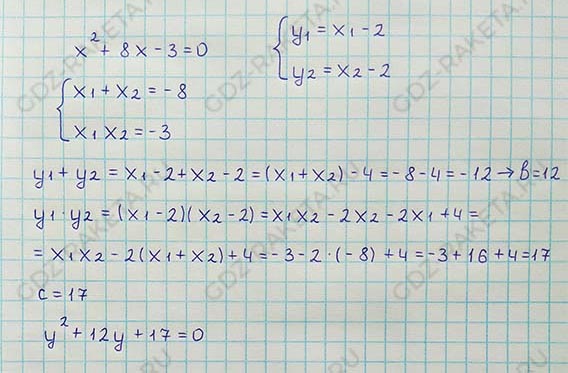 x² + 8x - 3 = 0
{ y1 = x1 - 2
y2 = x2 - 2
{ x1 + x2 = -8
x1 x2 = -3
y1 + y2 = x1 - 2 + x2 - 2 = (x1 + x2) - 4 = -8 - 4 = -12 → b = 12
y1 · y2 = (x1 - 2)(x2 - 2) = x1x2 - 2x2 - 2x1 + 4 =
= x1x2 - 2(x1 + x2) + 4 = -3 - 2 · (-8) + 4 = -3 + 16 + 4 = 17
c = 17
y² + 12y + 17 = 0
GDZ-RAKETA.RU